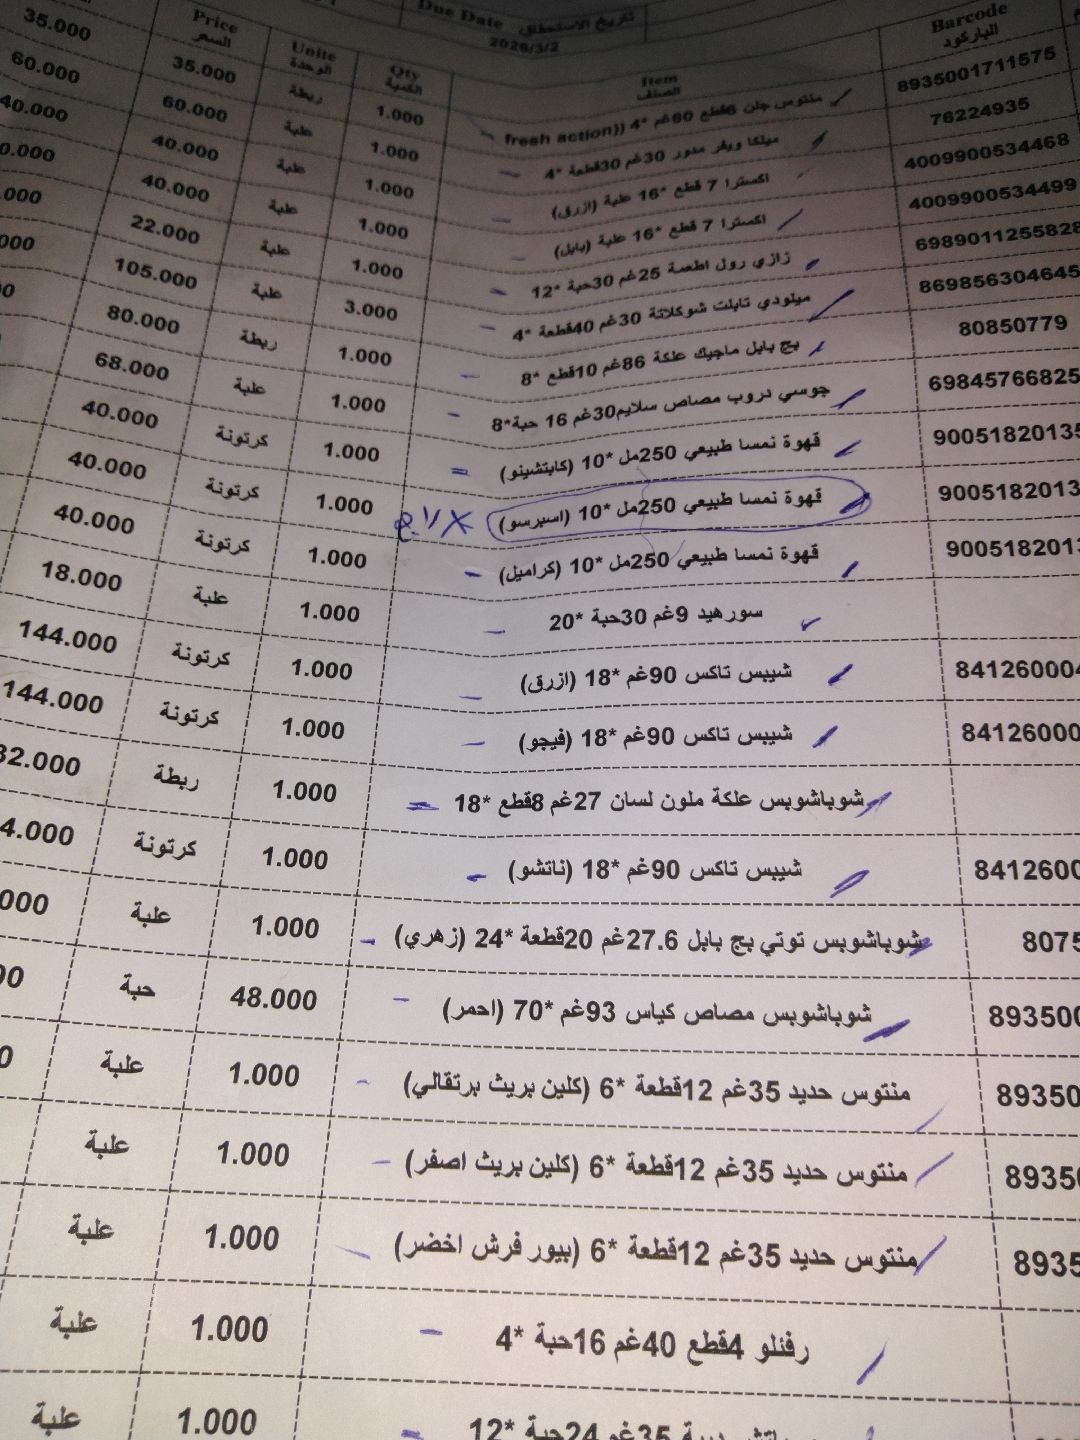 Due Date تاريخ الاستحقاق
2026/3/2
Barcode Item Qty Unite Price
الباركود الصنف الكمية الوحدة السعر
8935001711575 منتوس جلن 6قطع 60غم *4 ((fresh action 1.000 ربطة 35.000 35.000
76224935 ميلكا ويفر مدور 30غم 30قطعة *4 1.000 علبة 60.000 60.000
4009900534468 اكسترا 7 قطع *16 علبة (ازرق) 1.000 علبة 40.000 40.000
4009900534499 اكسترا 7 قطع *16 علبة (بابل) 1.000 علبة 40.000 0.000
6989011255828 زازي رول اطعمة 25غم 30حبة *12 1.000 علبة 22.000 .000
869856304645 ميلودي تابلت شوكلاتة 30غم 40قطعة *4 3.000 علبة 105.000 000
80850779 بج بابل ماجيك علكة 86غم 10قطع *8 1.000 ربطة 80.000 0
69845766825 جوسي دروب مصاص سلايم30غم 16 حبة*8 1.000 علبة 68.000
90051820135 قهوة نمسا طبيعي 250مل *10 (كابتشينو) 1.000 كرتونة 40.000
9005182013 قهوة نمسا طبيعي 250مل *10 (اسبرسو) 1.000 كرتونة 40.000
900518201 قهوة نمسا طبيعي 250مل *10 (كراميل) 1.000 كرتونة 40.000
سورهيد 9غم 30حبة *20 1.000 علبة 18.000
841260004 شيبس تاكس 90غم *18 (ازرق) 1.000 كرتونة 144.000
84126000 شيبس تاكس 90غم *18 (فيجو) 1.000 كرتونة 144.000
شوباشوبس علكة ملون لسان 27غم 8قطع *18 1.000 ربطة 32.000
8412600 شيبس تاكس 90غم *18 (ناتشو) 1.000 كرتونة 4.000
8075 شوباشوبس توتي بج بابل 27.6غم 20قطعة *24 (زهري) 1.000 علبة 000
893500 شوباشوبس مصاص كياس 93غم *70 (احمر) 48.000 حبة 00
89350 منتوس حديد 35غم 12قطعة *6 (كلين بريث برتقالي) 1.000 علبة 0
8935 منتوس حديد 35غم 12قطعة *6 (كلين بريث اصفر) 1.000 علبة
8935 منتوس حديد 35غم 12قطعة *6 (بيور فرش اخضر) 1.000 علبة
رفئلو 4قطع 40غم 16حبة *4 1.000 علبة
35غم 24حبة *12 1.000 علبة